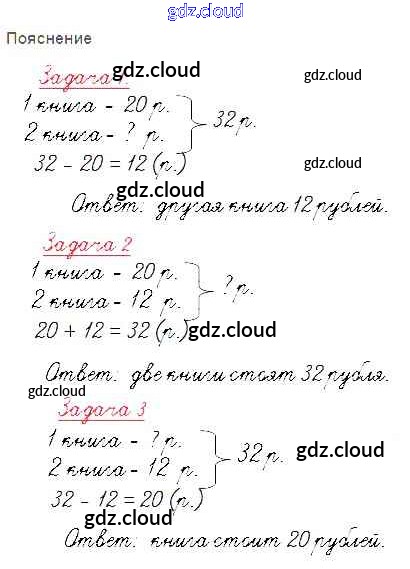 gdz.cloud
Пояснение
Задача 1. gdz.cloud gdz.cloud
1 книга - 20 р.
2 книга - ? р. } 32 р.
32 - 20 = 12 (р.) gdz.cloud
gdz.cloud
Ответ: другая книга 12 рублей.
Задача 2
1 книга - 20 р.
2 книга - 12 р. } ? р.
20 + 12 = 32 (р.) gdz.cloud
Ответ: две книги стоят 32 рубля.
gdz.cloud
Задача 3
1 книга - ? р.
2 книга - 12 р. } 32 р. gdz.cloud
32 - 12 = 20 (р.)
gdz.cloud
Ответ: книга стоит 20 рублей.